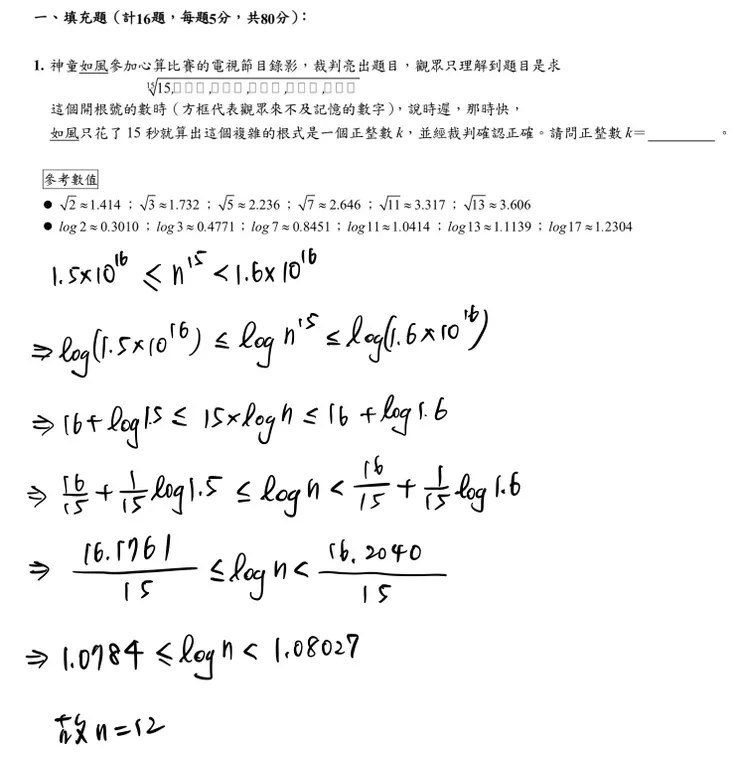 一、填充題（計16題，每題5分，共80分）：
1. 神童如風參加心算比賽的電視節目錄影，裁判亮出題目，觀眾只理解到題目是求
¹⁵√15,□□□,□□□,□□□,□□□,□□□
這個開根號的數時（方框代表觀眾來不及記憶的數字），說時遲，那時快，
如風只花了 15 秒就算出這個複雜的根式是一個正整數 k，並經裁判確認正確。請問正整數 k＝________。
參考數值
● √2≈1.414；√3≈1.732；√5≈2.236；√7≈2.646；√11≈3.317；√13≈3.606
● log2≈0.3010；log3≈0.4771；log7≈0.8451；log11≈1.0414；log13≈1.1139；log17≈1.2304
1.5×10¹⁶ ≤ n¹⁵ < 1.6×10¹⁶
⇒ log(1.5×10¹⁶) ≤ log n¹⁵ ≤ log(1.6×10¹⁶)
⇒ 16+log1.5 ≤ 15×log n ≤ 16+log1.6
⇒ 16/15 + 1/15 log1.5 ≤ log n < 16/15 + 1/15 log1.6
⇒ 16.1761/15 ≤ log n < 16.2040/15
⇒ 1.0784 ≤ log n < 1.08027
故 n=12